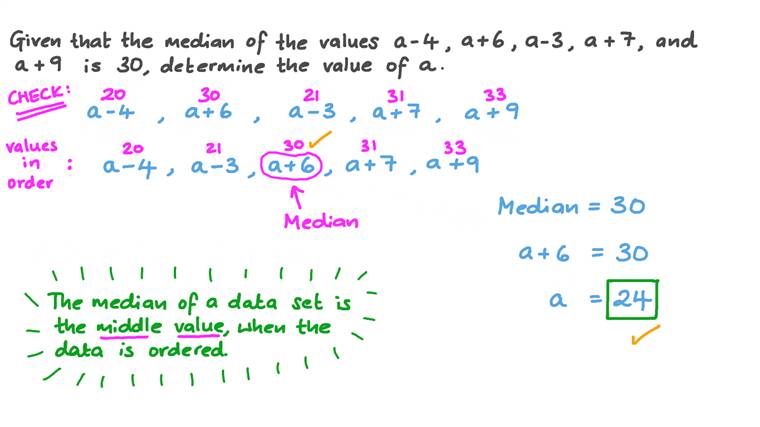 Given that the median of the values a-4, a+6, a-3, a+7, and
a+9 is 30, determine the value of a.
CHECK:
20 30 21 31 33
a-4, a+6, a-3, a+7, a+9
values in order:
20 21 30 31 33
a-4, a-3, a+6, a+7, a+9
Median
Median = 30
a+6 = 30
a = 24
The median of a data set is
the middle value, when the
data is ordered.